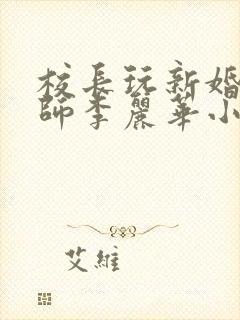 校長玩新婚
師李麗華小
艾維